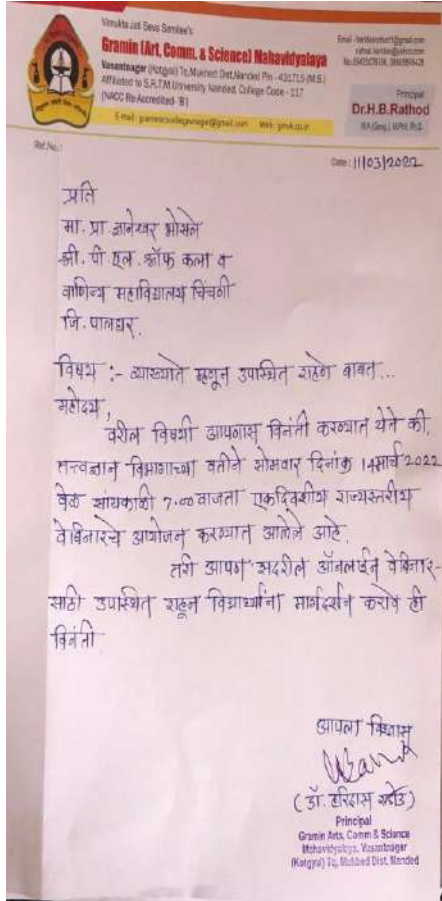 Vimukta Jati Seva Samitee's
Gramin (Art, Comm. & Science) Mahavidyalaya
Vasantnagar (Kotgyal) Tq. Mukhed Dist. Nanded Pin - 431715 (M.S.)
Affiliated to S.R.T.M University Nanded, College Code - 117
(NACC Re-Accredited 'B')
Principal
Dr.H.B.Rathod
Ref.No.:
Date : 11/03/2022
प्रति
मा. प्रा ज्ञानेश्वर भोसले
श्री. पी. एल. श्रॉफ कला व
वाणिज्य महाविद्यालय चिंचणी
जि. पालघर.
विषय :- व्याख्याते म्हणून उपस्थित राहणे बाबत...
महोदय,
वरील विषयी आपणास विनंती करण्यात येते की,
तत्त्वज्ञान विभागाच्या वतीने सोमवार दिनांक 14मार्च 2022
वेळ सांयकाळी 7.00 वाजता एकदिवशीय राज्यस्तरीय
वेबिनारचे आयोजन करण्यात आलेले आहे.
तरी आपण सदरील ऑनलाईन वेबिनार-
साठी उपस्थित राहून विद्यार्थ्यांना मार्गदर्शन करावे ही
विनंती
आपला विश्वासू
(डॉ. हरिदास राठोड)
Principal
Gramin Arts, Comm & Science
Mahavidyalaya, Vasantnagar
(Kotgyal) Tq. Mukhed Dist. Nanded